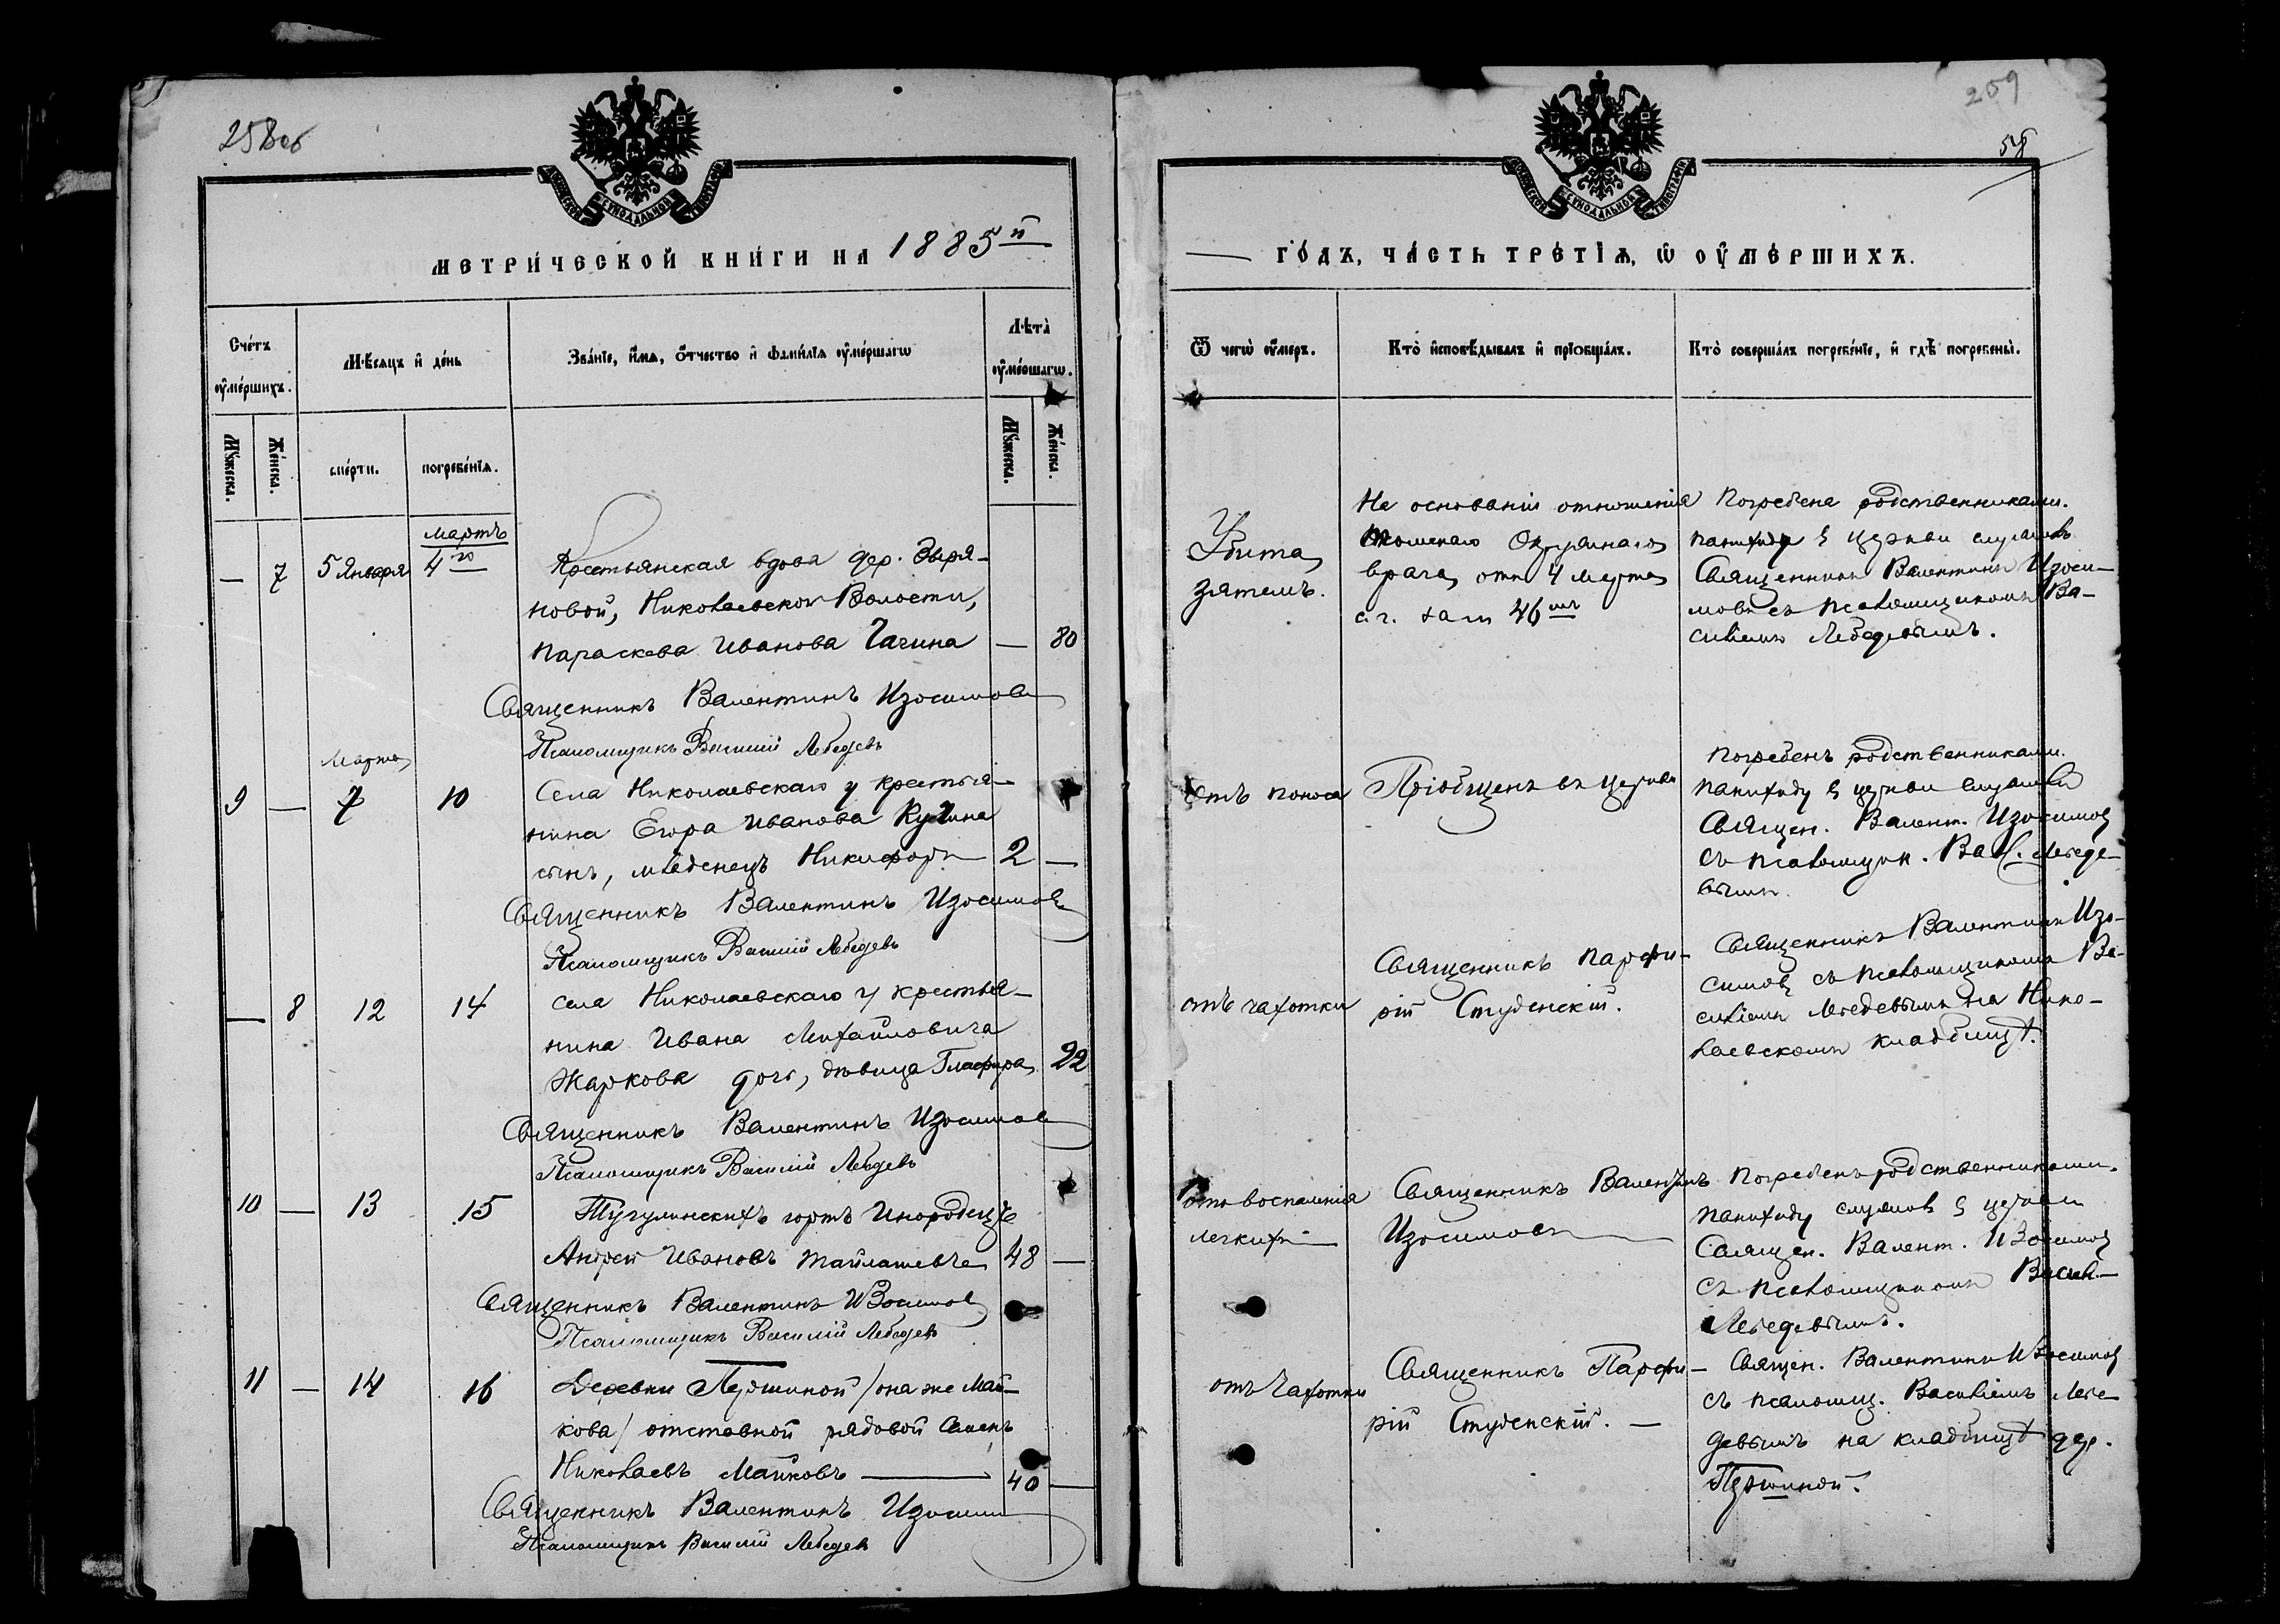 258 об
МЕТРИ́ЧЕСКОЙ КНИ́ГИ НА 1885 й
Сче́тъ оу҆ме́ршихъ.
Мѣ́сяцъ и҆ де́нь
Зва́нїе, и҆́мѧ, ѻ҆́тчество и҆ фамѝлїѧ оу҆ме́ршагѡ
Лѣ́та̀ оу҆ме́ршагѡ.
Мꙋ́жеска.
Же́нска.
сме́рти.
погребе́нїѧ.
Мꙋ́жеска.
Же́нска.
мартъ
— 7 5 Января 4 го Крестьянская вдова дер. Зыря-
новой, Николаевской Волости,
Параскева Иванова Гачина — 80
Священникъ Валентинъ Изосимовъ
Псаломщикъ Василій Лебедевъ
Марта
9 — 7 10 Села Николаевскаго у крестья-
нина Егора Иванова
сынъ, младенецъ Никифоръ 2 —
Священникъ Валентинъ Изосимовъ
Псаломщикъ Василій Лебедевъ
— 8 12 14 села Николаевскаго у крестья-
нина Ивана Михайловича
Жаркова дочь, дѣвица Глафира 22
Священникъ Валентинъ Изосимовъ
Псаломщикъ Василій Лебедевъ
10 — 13 15 Тугулинскихъ юртъ Инородецъ
Андрей Ивановъ 48 —
Священникъ Валентинъ Изосимовъ
Псаломщикъ Василій Лебедевъ
11 — 14 16 Деревни Першиной /она же Май-
кова/ отставной рядовой Семенъ
Николаевъ Майковъ — 40 —
Священникъ Валентинъ Изосимовъ
Псаломщикъ Василій Лебедевъ
259
58
— ГО́ДЪ, ЧА́СТЬ ТРЕ́ТЇѦ, Ѡ҆ ОУ҆МЕ́РШИХЪ.
Ѿ чегѡ̀ оу҆́меръ.
Кто̀ и҆сповѣ́дывалъ и҆ прїѻбща́лъ.
Кто̀ соверша́лъ погребе́нїе, и҆ гдѣ̀ погребены̀.
Убита
зятемъ.
На основаніи отношенія
Окружнаго
врача, отъ 4 Марта
с. г. за № 46 мъ
Погребена родственниками.
панихиду въ церкви служилъ
Священникъ Валентинъ Изоси-
мовъ съ псаломщикомъ Ва-
силіемъ Лебедевымъ.
отъ поноса
Пріобщенъ въ церкви
Погребенъ родственниками.
панихиду въ церкви служилъ
Священ. Валент. Изосимовъ
съ псаломщик. Вас. Лебеде-
вымъ.
отъ чахотки
Священникъ Парфи-
рій Студенскій.
Священникъ Валентинъ Изо-
симовъ съ псаломщикомъ Ва-
силіемъ Лебедевымъ на Нико-
лаевскомъ кладбищѣ.
отъ воспаленія
легкихъ
Священникъ Валентинъ
Изосимовъ
Погребенъ родственниками.
панихиду служилъ въ церкви
Священ. Валент. Изосимовъ
съ псаломщикомъ Васил.
Лебедевымъ.
отъ Чахотки
Священникъ Парфи-
рій Студенскій. —
Священ. Валентинъ Изосимовъ
съ псаломщ. Василіемъ Лебе-
девымъ на кладбищѣ дер.
Першиной.